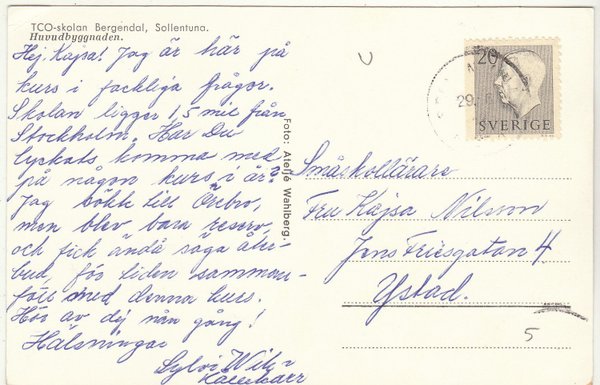 TCO-skolan Bergendal, Sollentuna.
Huvudbyggnaden.
Hej Kajsa! Jag är här på
kurs i fackliga frågor.
Skolan ligger 1,5 mil från
Stockholm. Har Du
lyckats komma med
på någon kurs i år?
Jag sökte till Örebro,
men blev bara reserv,
och fick ändå säga åter-
bud, för tiden samman-
föll med denna kurs.
Hör av dej nån gång!
Hälsningar
Sylvi
Foto: Ateljé Wahlberg
20
SVERIGE
29.
Småskollärare
Fru Kajsa Nilsson
Jens Friisgatan 4
Ystad.
5